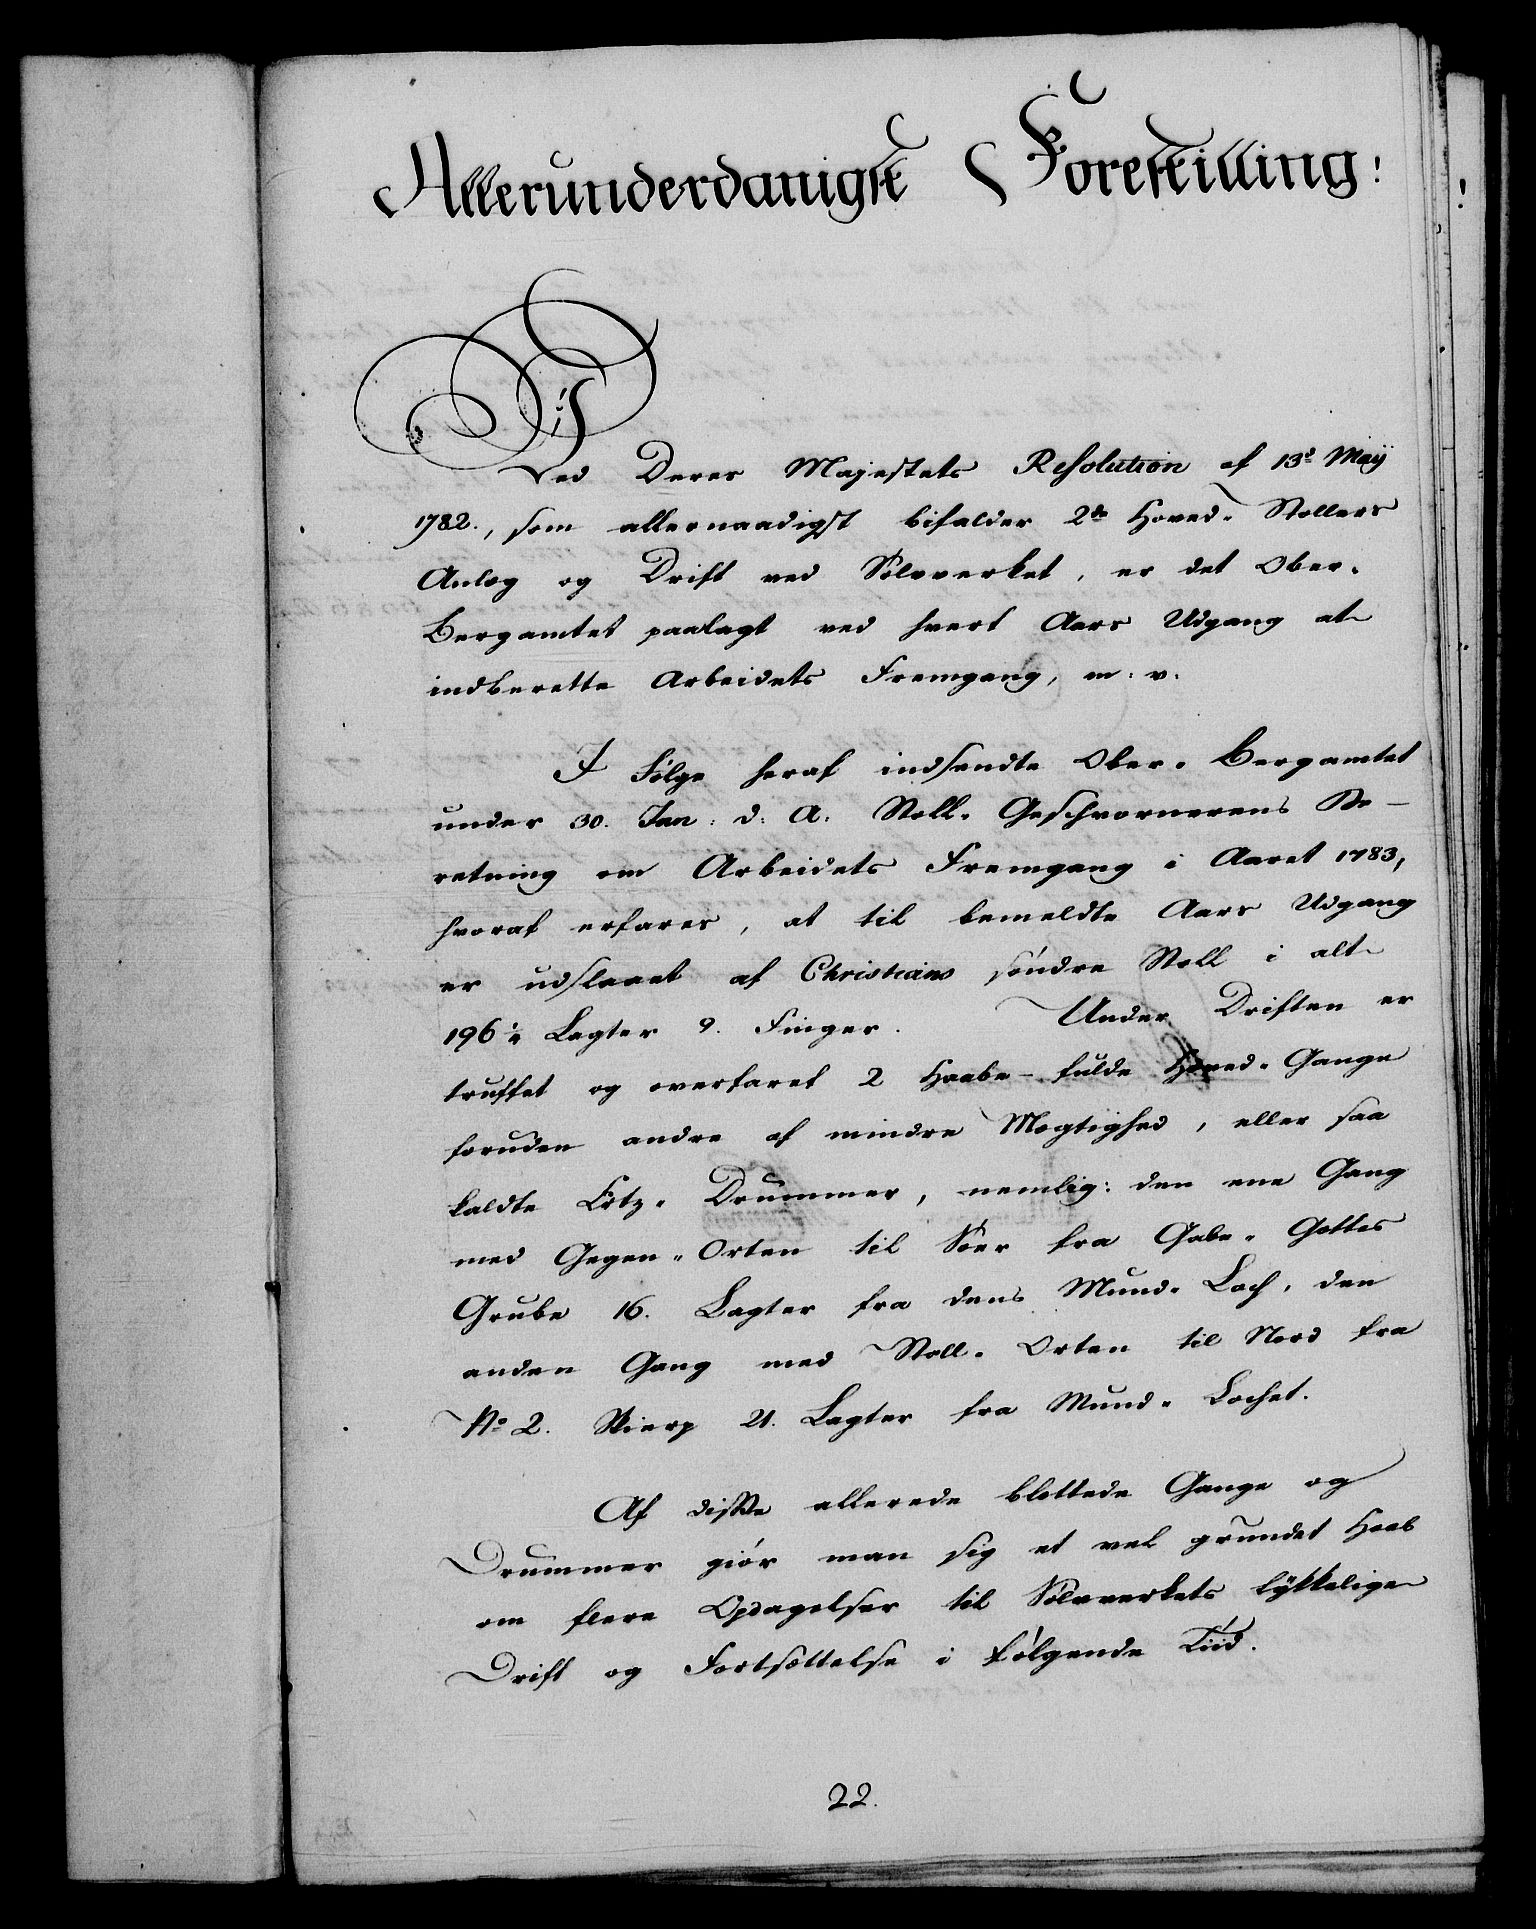 Allerunderdanigst Forestilling!
Ved Deres Majestets Resolution af 13de Maij
1782., som allernaadigst bifalder 2de Hoved-Stollers
Anlæg og Drift ved Sölvverket, er det Ober-
Bergamtet paalagt ved hvert Aars Udgang at
indberette Arbeidets Fremgang, m: v.
I Fölge heraf indsendte Ober-Bergamtet
under 30. Jan: d: A: Stoll-Geschvornerens Be-
retning om Arbeidets Fremgang i Aaret 1783,
hvoraf erfares, at til bemeldte Aars Udgang
er udslaaet af Christians söndre Stoll i alt
196½ Lagter 9. Finger. Under Driften er
truffet og overfaret 2 Haabe-fulde Hoved-Gange
foruden andre af mindre Mægtighed, eller saa
kaldte Ertz-Drummer, nemlig: den ene Gang
med Gegen-Orten til Söer fra Gabe-Gottes
Grube 16. Lagter fra dens Mund-Loch, den
anden Gang med Stoll-Orten til Nord fra
No 2. Skierp 21. Lagter fra Mund-Lochet.
Af disse allerede blottede Gange og
Drummer giör man sig et vel grundet Haab
om flere Opdagelser til Sölvverkets lykkelige
Drift og Fortsættelse i fölgende Tiid.
22.